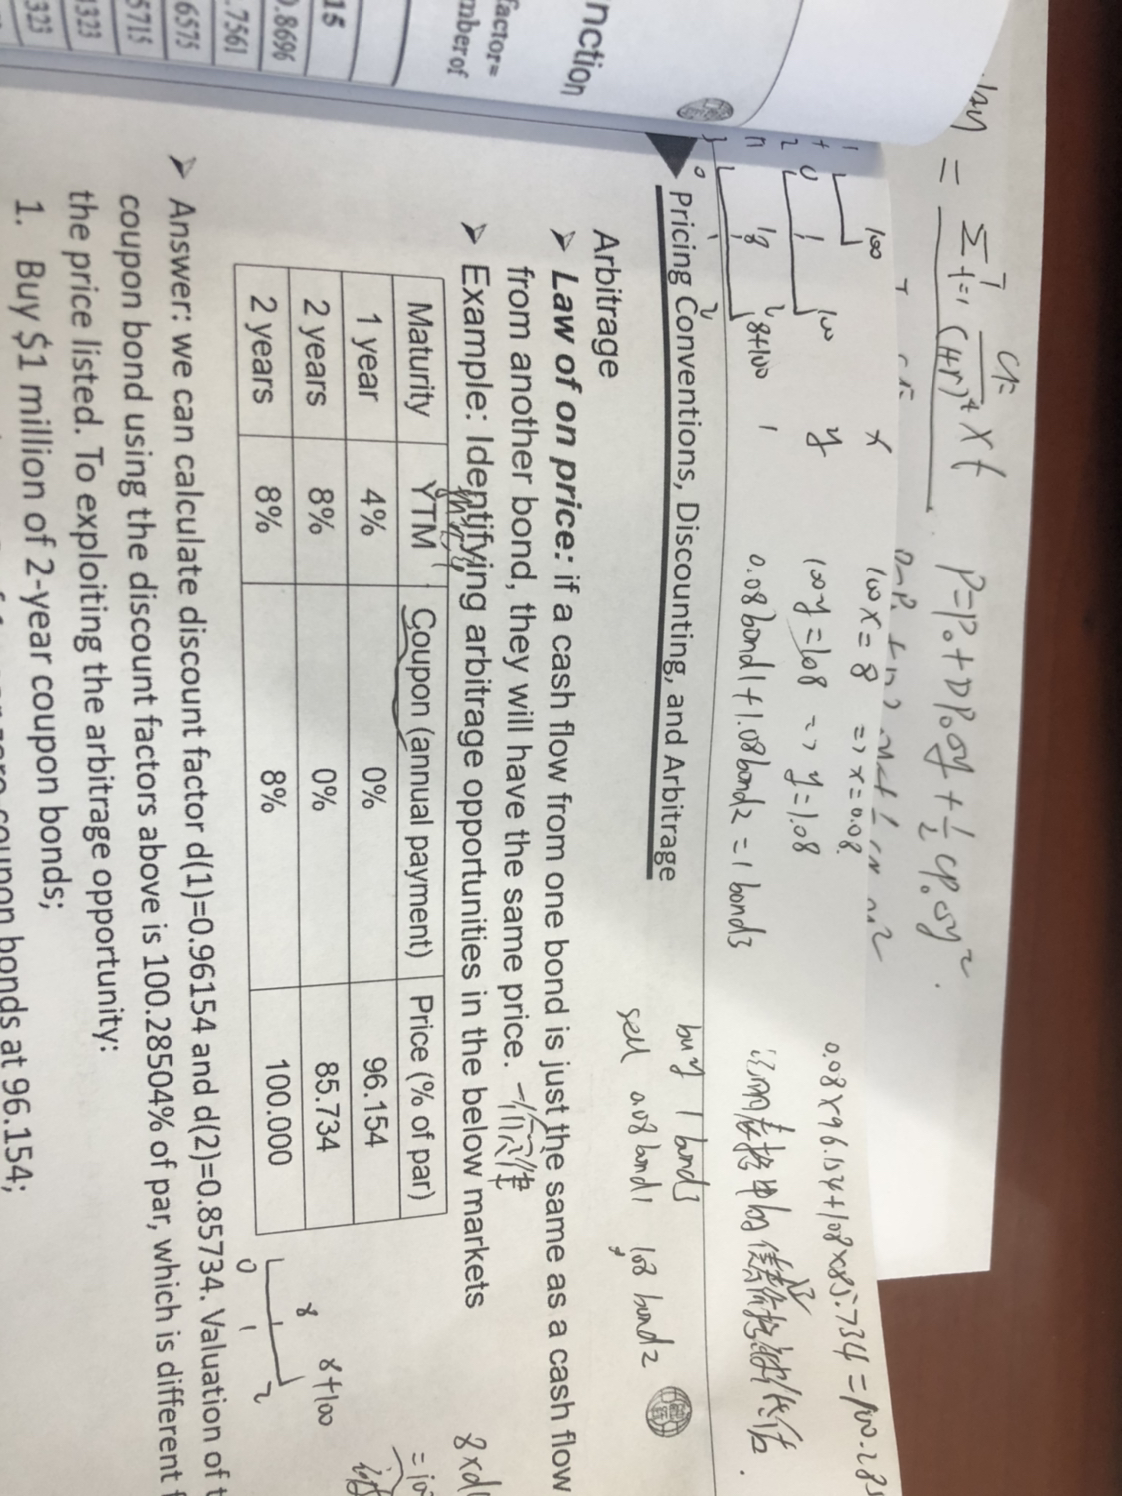 = Σ CF/(1+r)^t × t
P=P₀+DP₀oy+½CP₀oy²
1 100 x 100x=8 => x=0.08
2 100 y 100y=108 => y=1.08
3 8 8+100 1 0.08bond1+1.08bond2=1bond3
0.08×96.154+1.08×85.734=100.285
buy 1 bond3
sell 0.08 bond1 1.08 bond2
Pricing Conventions, Discounting, and Arbitrage
Arbitrage
➢ Law of on price: if a cash flow from one bond is just the same as a cash flow
from another bond, they will have the same price. 一价定律
➢ Example: Identifying arbitrage opportunities in the below markets
Maturity YTM Coupon (annual payment) Price (% of par)
1 year 4% 0% 96.154
2 years 8% 0% 85.734
2 years 8% 8% 100.000
0 1 2
8 8+100
➢ Answer: we can calculate discount factor d(1)=0.96154 and d(2)=0.85734. Valuation of
coupon bond using the discount factors above is 100.28504% of par, which is different
the price listed. To exploiting the arbitrage opportunity:
1. Buy $1 million of 2-year coupon bonds;
bonds at 96.154;
nction
factor=
mber of
15
0.8696
.7561
6575
5715
323